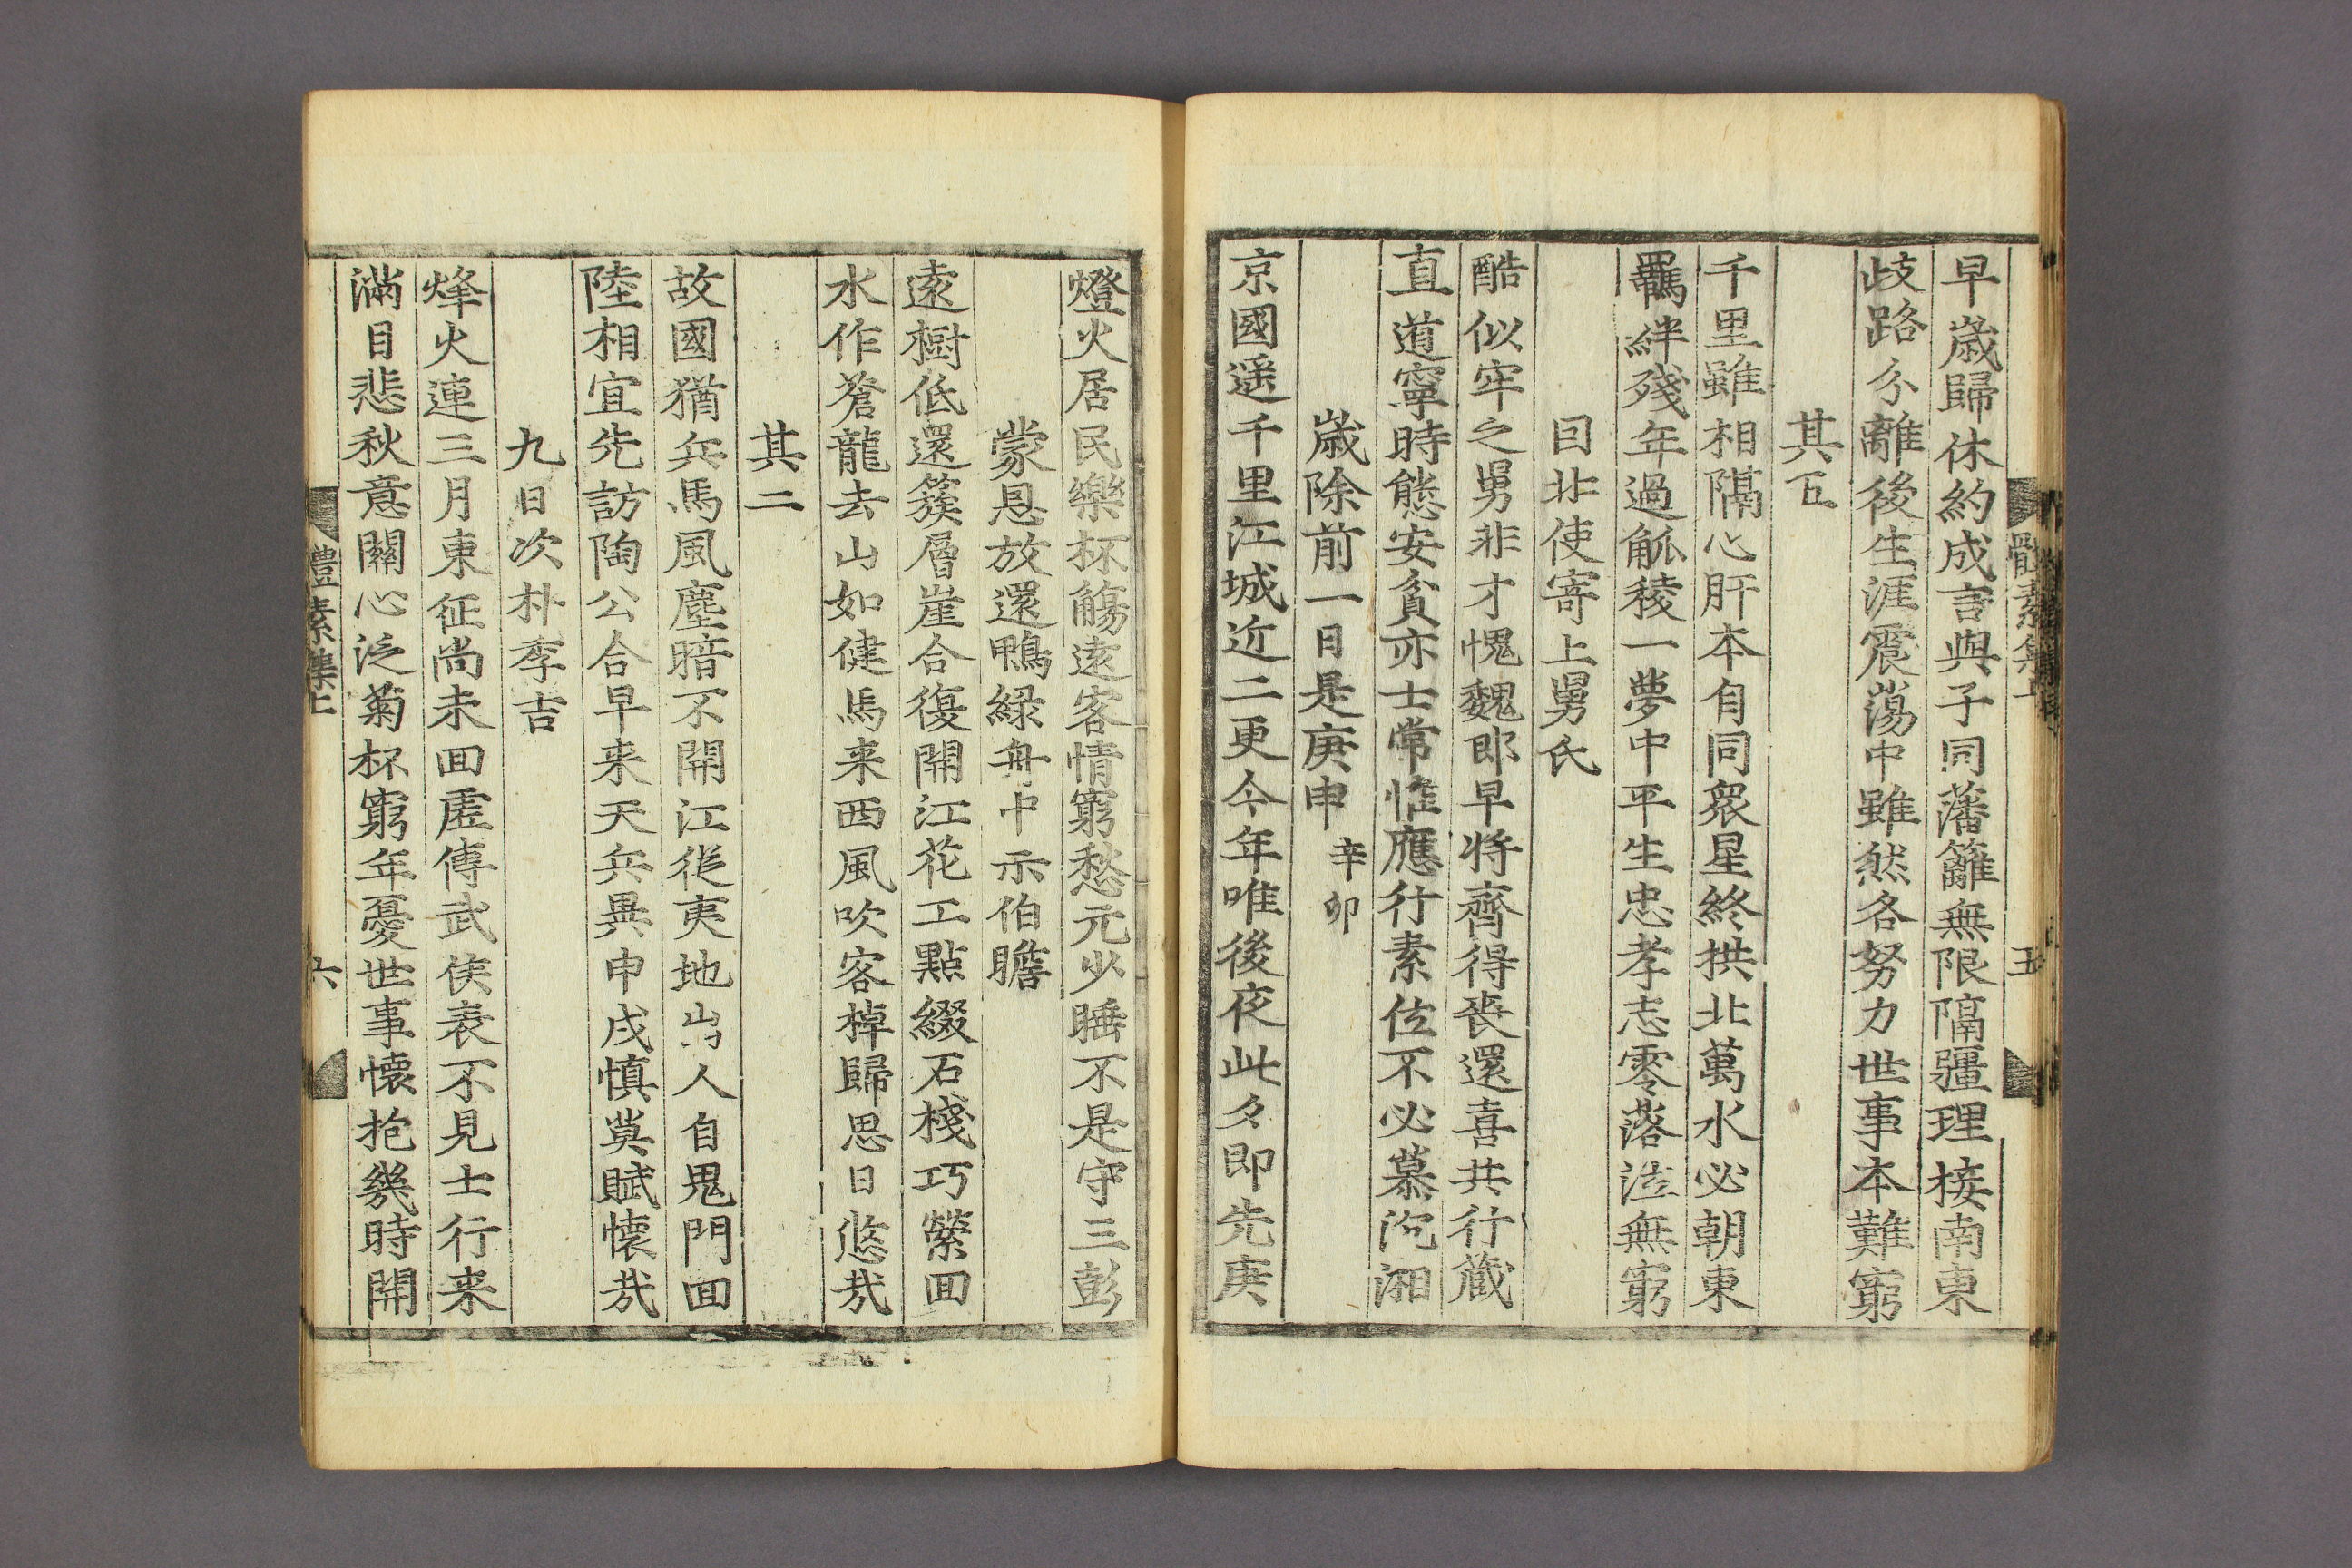 體素集上
五
早歲歸休約成言與子同藩籬無限隔疆理接南東
歧路分離後生涯震蕩中雖然各努力世事本難窮
其五
千里雖相隔心肝本自同衆星終拱北萬水必朝東
羈絆殘年過觚稜一夢中平生忠孝志零落泣無窮
因北使寄上舅氏
酷似牢之舅非才愧魏郎早將齊得喪還喜共行藏
直道寧時態安貧亦士常惟應行素位不必慕沅湘
歲除前一日是庚申辛卯
京國遥千里江城近二更今年唯後夜此夕即先庚
燈火居民樂杯觴遠客情窮愁元少睡不是守三彭
蒙恩放還鴨緑舟中示伯瞻
遠樹低還簇層崖合復開江花工點綴石棧巧縈回
水作蒼龍去山如健馬来西風吹客棹歸思日悠哉
其二
故國猶兵馬風塵暗不開江從夷地出人自鬼門回
陸相宜先訪陶公合早来天兵異申戌慎莫賦懷哉
九日次朴季吉
烽火連三月東征尚未回虛傳武侯表不見士行来
滿目悲秋意關心泛菊杯窮年憂世事懷抱幾時開
體素集上
六